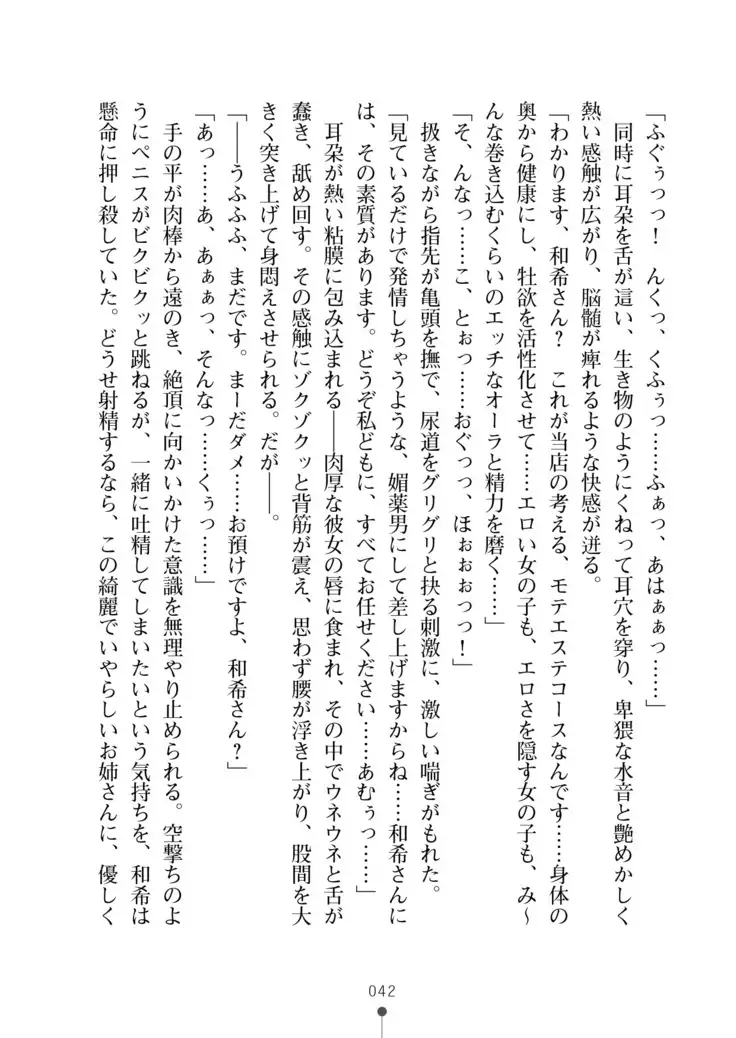 「ふぐぅっっ！　んくっ、くふぅっ……ふぁっ、あはぁぁっ……」
　同時に耳朶を舌が這い、生き物のようにくねって耳穴を穿り、卑猥な水音と艶めかしく
熱い感触が広がり、脳髄が痺れるような快感が迸る。
「わかります、和希さん？　これが当店の考える、モテエステコースなんです……身体の
奥から健康にし、牡欲を活性化させて……エロい女の子も、エロさを隠す女の子も、み～
んな巻き込むくらいのエッチなオーラと精力を磨く……」
「そ、んなっ……こ、とぉっ……おぐっっ、ほぉぉぉっっ！」
　扱きながら指先が亀頭を撫で、尿道をグリグリと抉る刺激に、激しい喘ぎがもれた。
「見ているだけで発情しちゃうような、媚薬男にして差し上げますからね……和希さんに
は、その素質があります。どうぞ私どもに、すべてお任せください……あむぅっ……」
　耳朶が熱い粘膜に包み込まれる――肉厚な彼女の唇に食まれ、その中でウネウネと舌が
蠢き、舐め回す。その感触にゾクゾクッと背筋が震え、思わず腰が浮き上がり、股間を大
きく突き上げて身悶えさせられる。だが――。
「――うふふふ、まだです。まーだダメ……お預けですよ、和希さん？」
「あっ……あ、あぁぁっ、そんなっ……くぅっ……」
　手の平が肉棒から遠のき、絶頂に向かいかけた意識を無理やり止められる。空撃ちのよ
うにペニスがビクビクッと跳ねるが、一緒に吐精してしまいたいという気持ちを、和希は
懸命に押し殺していた。どうせ射精するなら、この綺麗でいやらしいお姉さんに、優しく
042